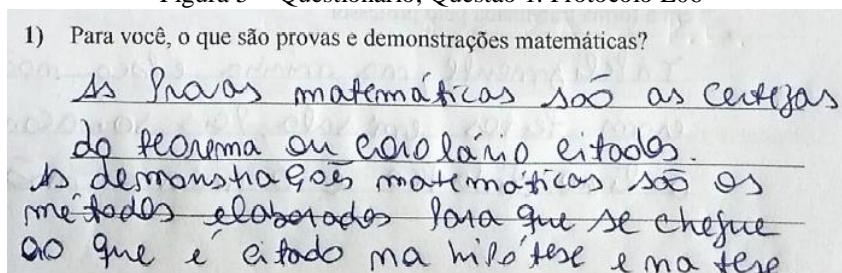 Figura 3 – Questionário, Questão 1. Protocolo E06
1) Para você, o que são provas e demonstrações matemáticas?
As Provas matemáticas são as certezas
do teorema ou corolário citados.
As demonstrações matemáticas são os
métodos elaborados para que se chegue
ao que é citado na hipótese e na tese